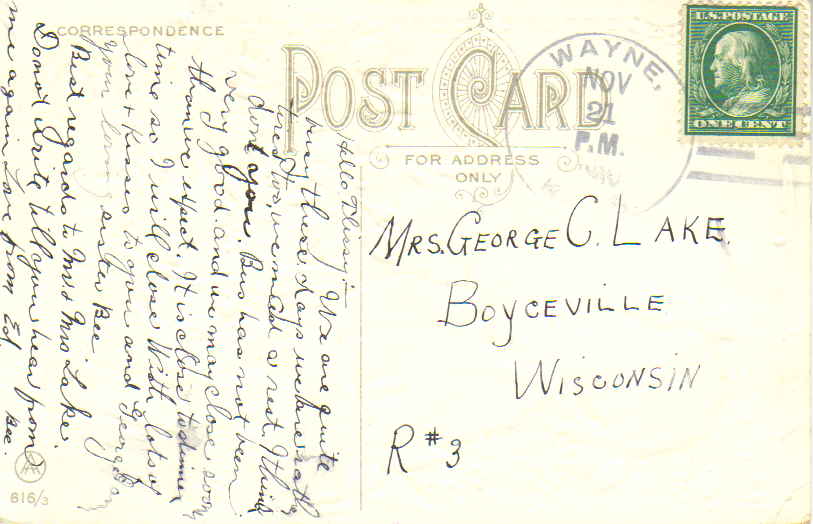 CORRESPONDENCE
POST CARD
FOR ADDRESS
ONLY
WAYNE,
NOV
21
P.M.
U.S. POSTAGE
ONE CENT
Hello Flissy:— We are quite
busy these days we were rather
tired so we need a rest. I think
don't you. Bus has not been
very good and in may close soon
than we expect. It is close to dinner
time so I will close With lots of
love + kisses to you and George
your loving sister Bee
Best regards to Mr & Mrs Lake.
Do not write till you hear from
me again Love from Ed. Bee.
MRS. GEORGE C. LAKE.
BOYCEVILLE
WISCONSIN
R #3
616/3